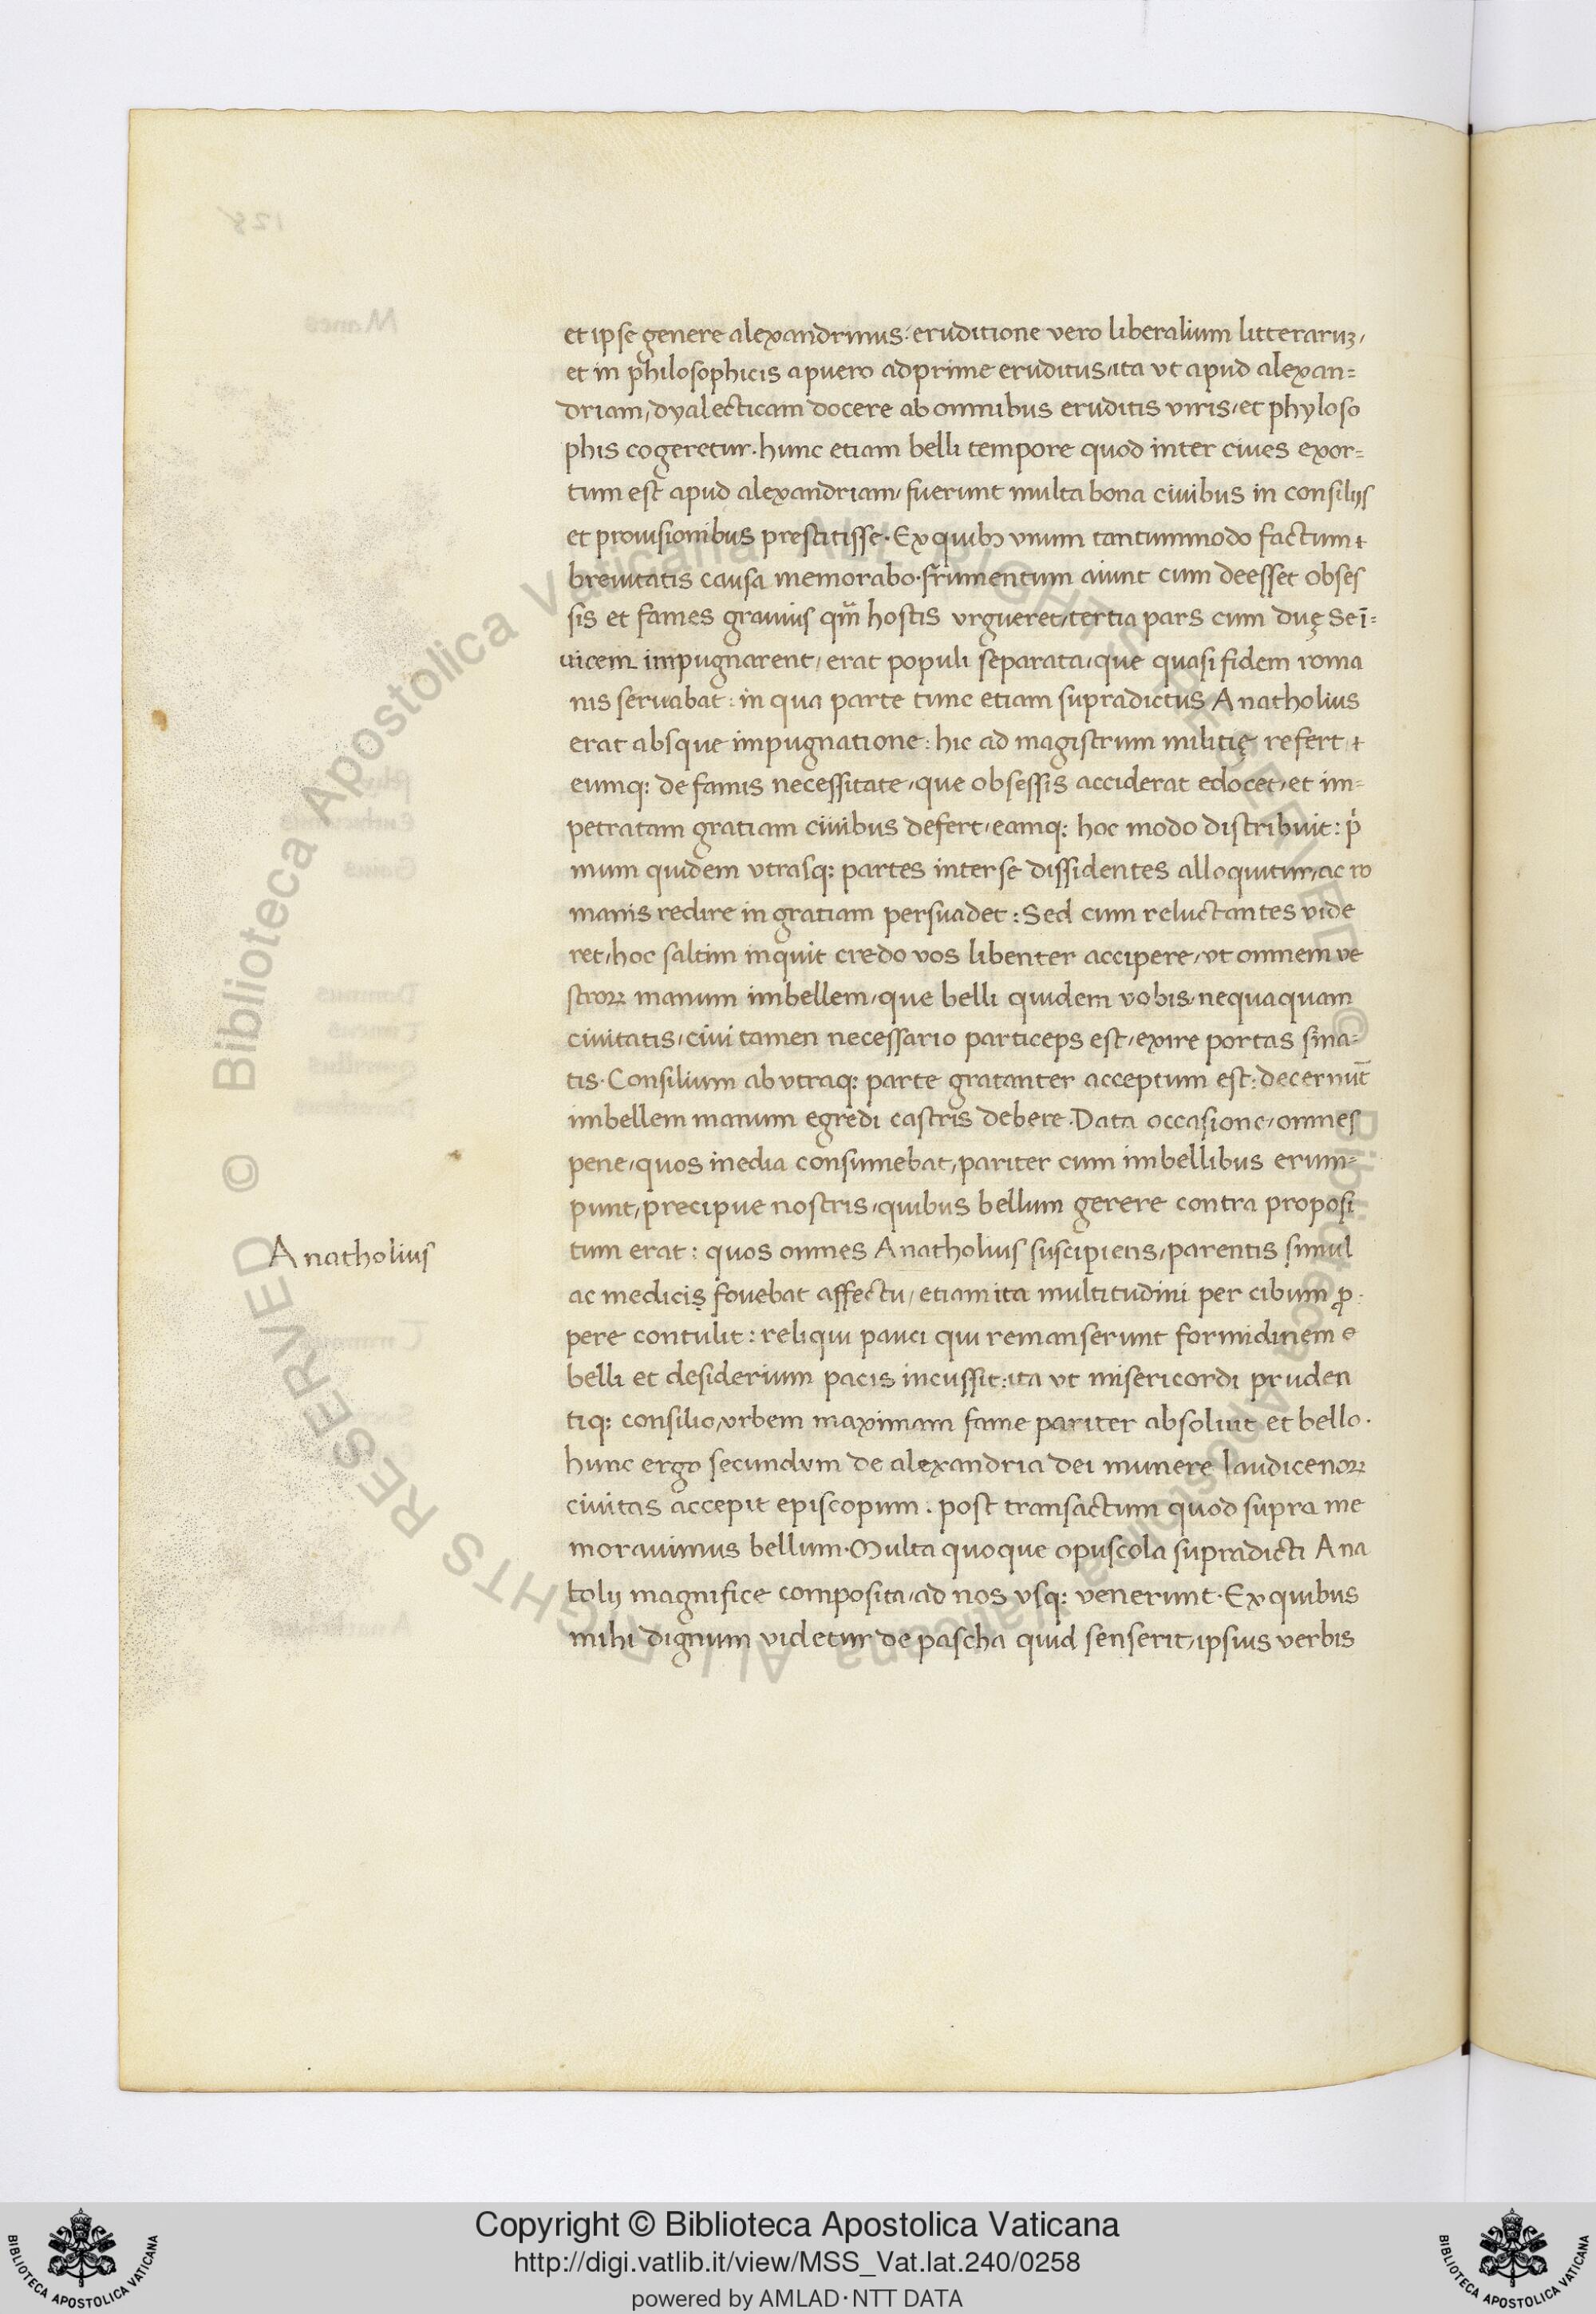 et ipse genere alexandrinus. eruditione vero liberalium litteraruꝫ,
et in philosophicis a puero adprime eruditus, ita vt apud alexan=
driam, dyalecticam docere ab omnibus eruditis viris, et phyloso
phis cogeretur. hunc etiam belli tempore quod inter ciues exor=
tum est apud alexandriam, fuerunt multa bona ciuibus in consilijs
et prouisionibus prestitisse. Ex quibꝫ vnum tantummodo factum
breuitatis causa memorabo. frumentum aiunt cum deesset obses
sis et fames grauius qm̄ hostis vrgueret, tertia pars cum duę se ī=
uicem impugnarent, erat populi separata, que quasi fidem roma
nis seruabat: in qua parte tunc etiam supradictus Anatholius
erat absque impugnatione: hic ad magistrum militię refert
eumq: de famis necessitate, que obsessis acciderat edocet, et im=
petratam gratiam ciuibus defert, eamq: hoc modo distribuit: pͥ
mum quidem vtrasq: partes inter se dissidentes alloquitur, ac ro
manis redire in gratiam persuadet: Sed cum reluctantes vide
ret, hoc saltim inquit credo vos libenter accipere, vt omnem ve
stroꝝ manum imbellem, que belli quidem vobis, nequaquam
ciuitatis, ciui tamen necessario particeps est, exire portas sina=
tis. Consilium ab vtraq: parte gratanter acceptum est: decernūt
imbellem manum egredi castris debere. Data occasione, omnes
pene, quos inedia consumebat, pariter cum imbellibus erum=
punt, precipue nostris, quibus bellum gerere contra proposi
Anatholius
tum erat: quos omnes Anatholius suscipiens, parentis simul
ac medicis fouebat affectu, etiam ita multitudini per cibum ꝓ
pere contulit: reliqui pauci qui remanserunt formidinem
belli et desiderium pacis incussit: ita vt misericordi pruden
tiq: consilio, vrbem maximam fame pariter absoluit et bello.
hunc ergo secundvm de alexandria dei munere laudicenoꝝ
ciuitas accepit episcopum. post transactum quod supra me
morauimus bellum. Multa quoque opuscola supradicti Ana
tolij magnifice composita, ad nos vsq: venerunt. Ex quibus
mihi dignum videtur de pascha quid senserit, ipsius verbis
© Biblioteca Apostolica Vaticana ALL RIGHTS RESERVED © Biblioteca Apostolica Vaticana ALL RIGHTS RESERVED
Copyright © Biblioteca Apostolica Vaticana
http://digi.vatlib.it/view/MSS_Vat.lat.240/0258
powered by AMLAD·NTT DATA
BIBLIOTECA APOSTOLICA VATICANA
BIBLIOTECA APOSTOLICA VATICANA